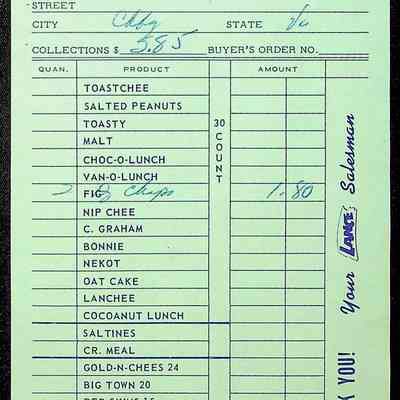 STREET
CITY Ckbg STATE Va
COLLECTIONS $ 5.85 BUYER'S ORDER NO.
QUAN. PRODUCT AMOUNT
TOASTCHEE
SALTED PEANUTS
TOASTY
MALT
CHOC-O-LUNCH
VAN-O-LUNCH
2 FIG Chips 1.80
NIP CHEE
C. GRAHAM
BONNIE
NEKOT
OAT CAKE
LANCHEE
COCOANUT LUNCH
SALTINES
CR. MEAL
GOLD-N-CHEES 24
BIG TOWN 20
30 COUNT
K YOU! Your LANCE Salesman